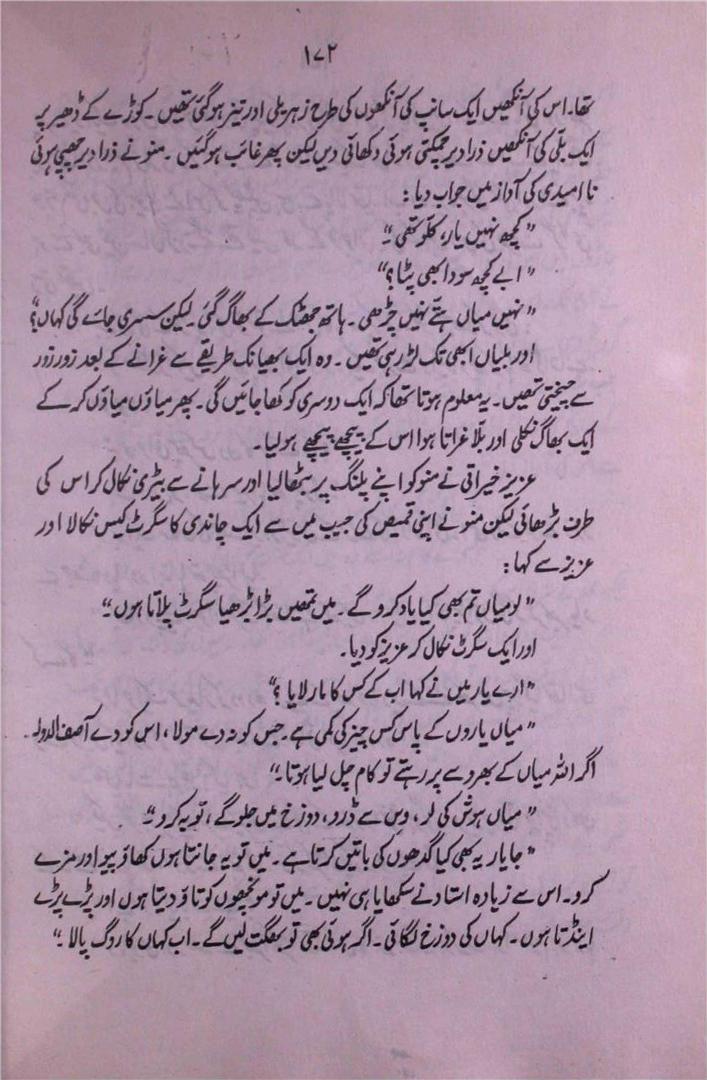 ۱۷۲
تھا۔ اس کی آنکھیں ایک سانپ کی آنکھوں کی طرح زہریلی اور تیز ہوگئی تھیں۔ کوڑے کے ڈھیر پر
ایک بلّی کی آنکھیں ذرا دیر چمکتی ہوئی دکھائی دیں لیکن پھر غائب ہوگئیں۔ منو نے ذرا دیر چھپی ہوئی
نا امیدی کی آواز میں جواب دیا:
"کچھ نہیں یار، کلّو تھی۔"
"ابے کچھ سودا بھی پٹا؟"
"نہیں میاں ہتے نہیں چڑھی۔ ہاتھ جھٹک کے بھاگ گئی۔ لیکن سسری جائے گی کہاں؟"
اور بلیاں ابھی تک لڑ رہی تھیں۔ وہ ایک بھیانک طریقے سے غرانے کے بعد زور زور
سے چیختی تھیں۔ یہ معلوم ہوتا تھا کہ ایک دوسری کو کھا جائیں گی۔ پھر میاؤں میاؤں کر کے
ایک بھاگ نکلی اور بلّا غراتا ہوا اس کے پیچھے پیچھے ہولیا۔
عزیز خیراتی نے منو کو اپنے پلنگ پر بٹھا لیا اور سرہانے سے بیڑی نکال کر اس کی
طرف بڑھائی لیکن منو نے اپنی قمیص کی جیب میں سے ایک چاندی کا سگرٹ کیس نکالا اور
عزیز سے کہا:
"لو میاں تم بھی کیا یاد کرو گے۔ میں تمھیں بڑا بڑھیا سگرٹ پلاتا ہوں۔"
اور ایک سگرٹ نکال کر عزیز کو دیا۔
"ارے یار میں نے کہا اب کے کس کا مار لایا؟"
"میاں یاروں کے پاس کس چیز کی کمی ہے۔ جس کو نہ دے مولا، اس کو دے آصف الدولہ۔
اگر اللہ میاں کے بھروسے پر رہتے تو کام چل لیا ہوتا۔"
"میاں ہوش کی لو، وس سے ڈرو، دوزخ میں جلو گے، توبہ کرو۔"
"جا یار یہ بھی کیا گدھوں کی باتیں کرتا ہے۔ میں تو یہ جانتا ہوں کھاؤ پیو اور مزے
کرو۔ اس سے زیادہ استاد نے سکھایا ہی نہیں۔ میں تو مونچھوں کو تاؤ دیتا ہوں اور پڑے پڑے
اینڈتا ہوں۔ کہاں کی دوزخ لگائی۔ اگر ہوئی بھی تو بھگت لیں گے۔ اب کہاں کا روگ پالا۔"